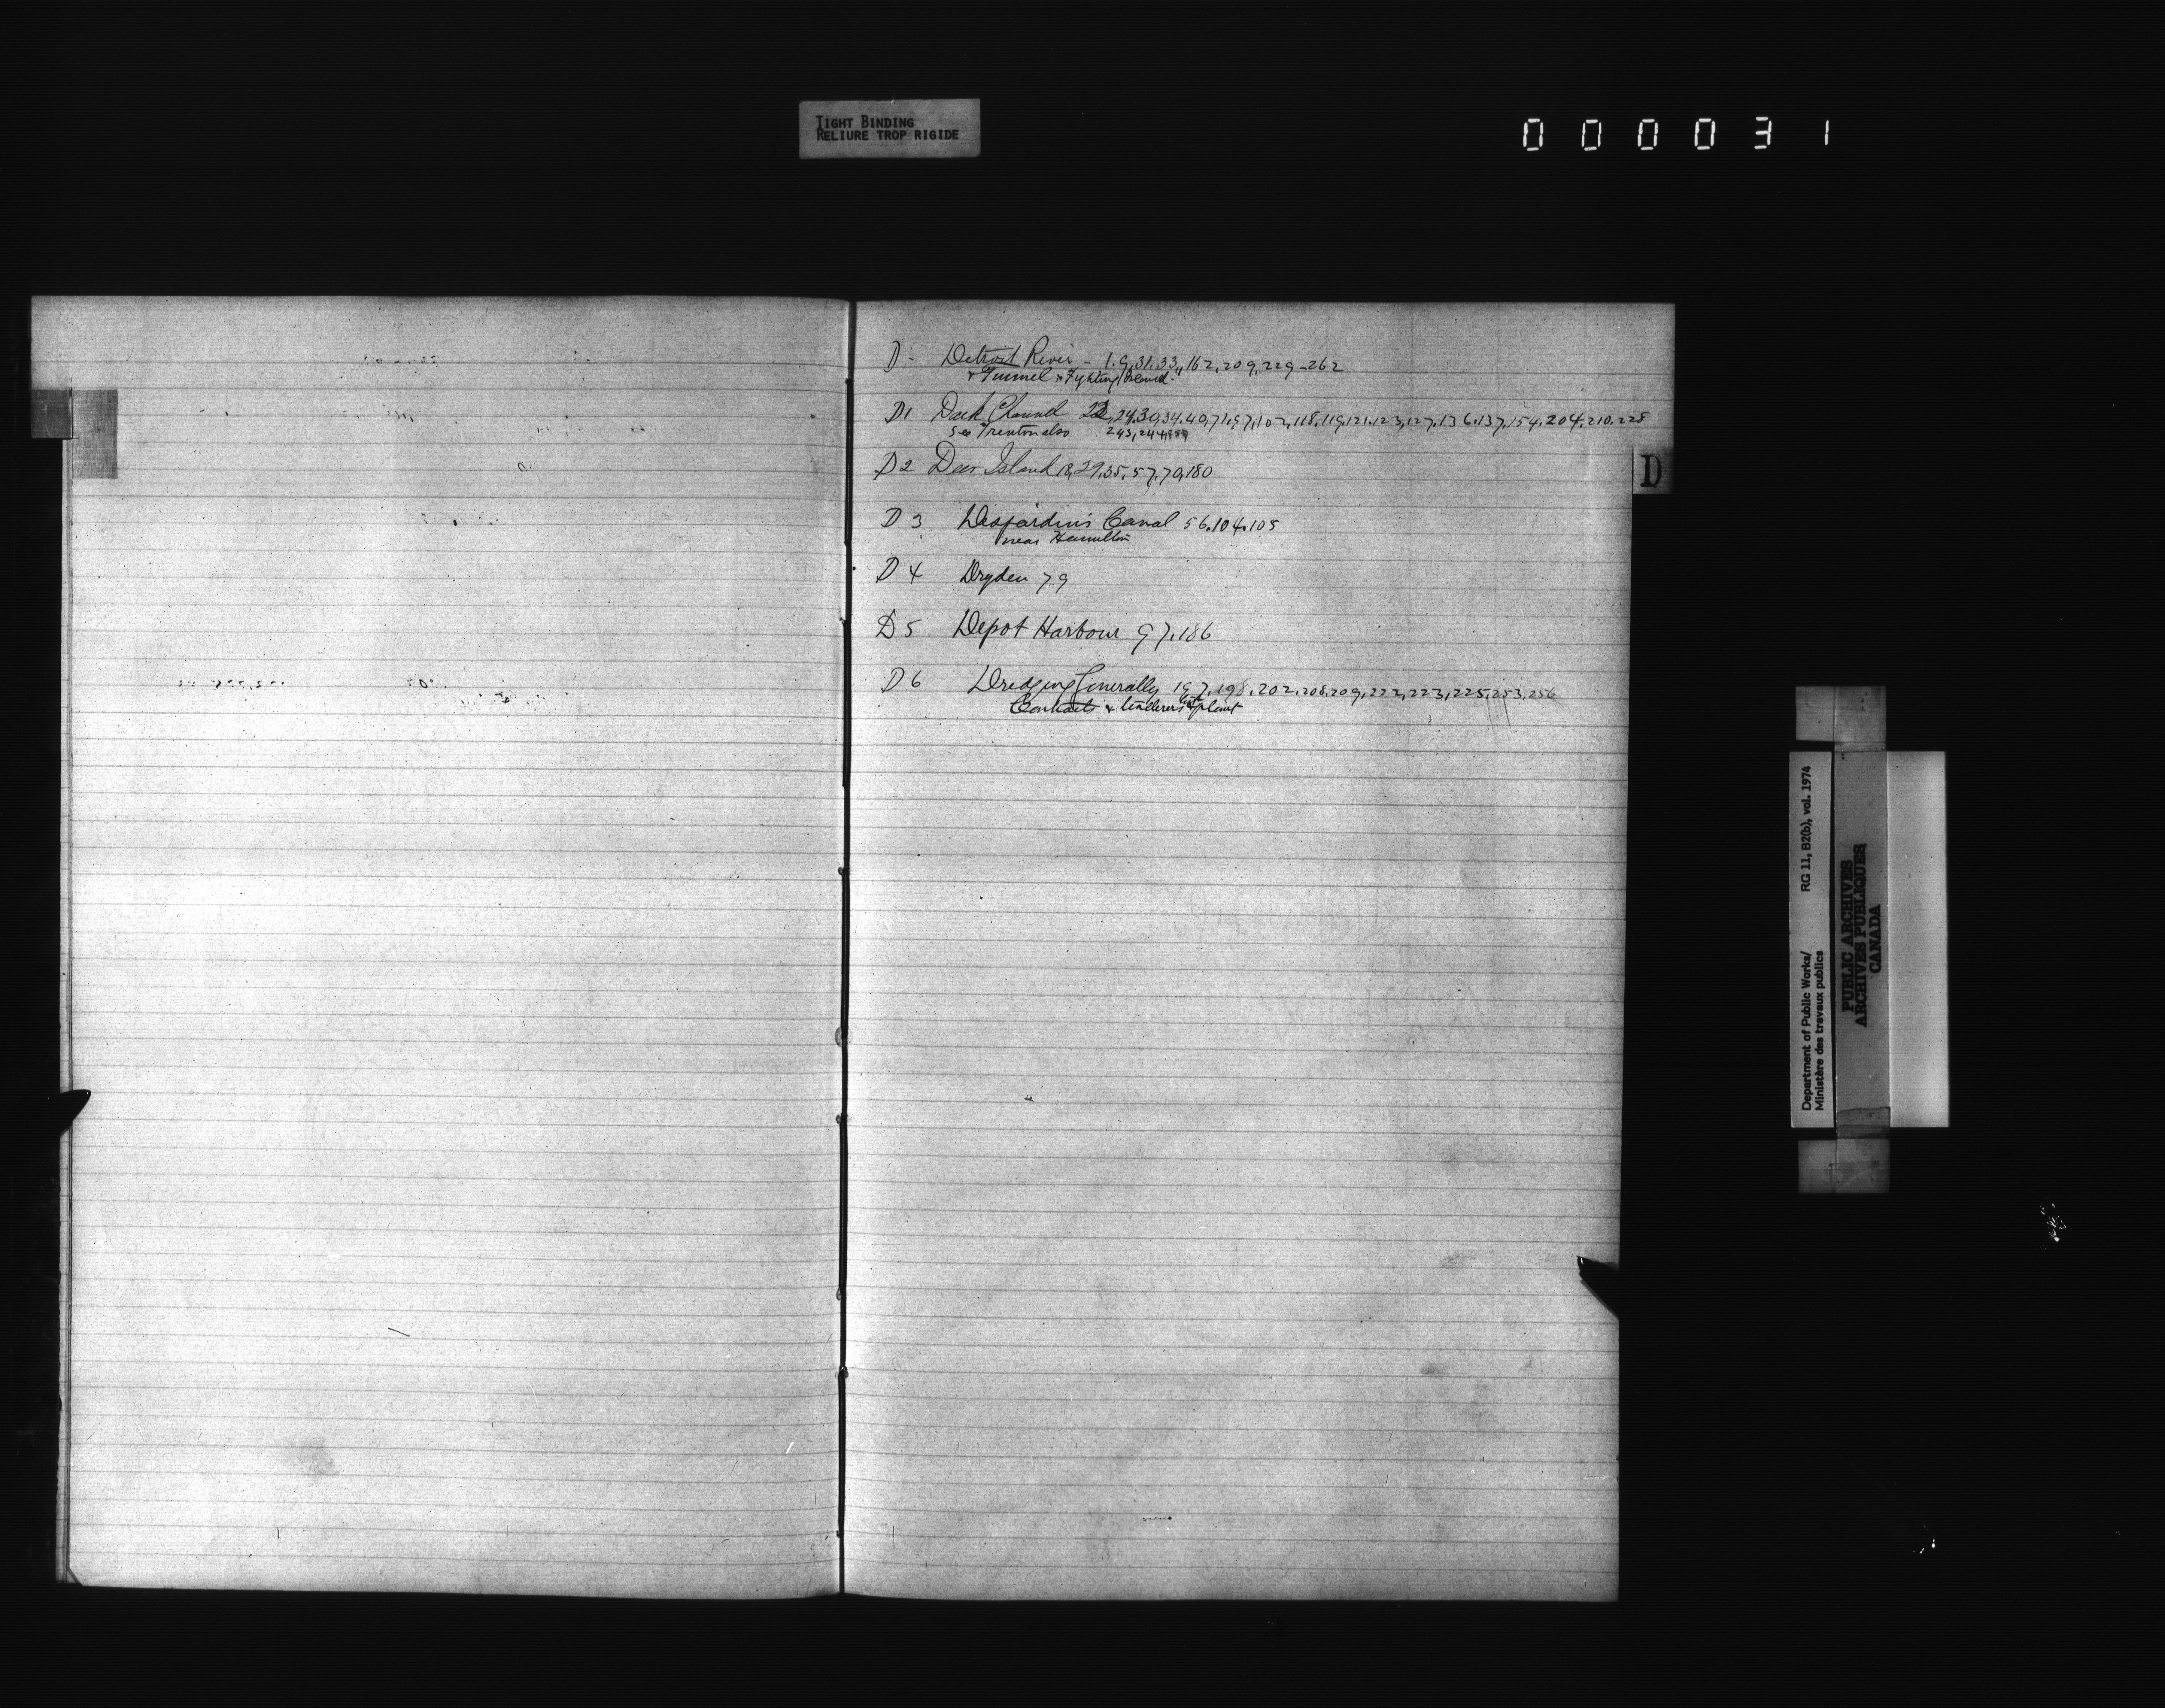 TIGHT BINDING
RELIURE TROP RIGIDE
000031
D - Detroit River - 1.9,31.33,,162,209,229-262
& Tunnel & Fighting Island.
D1 Dark Channel 22,24,30,34.40,71,97,102,118.119,121.123,127,136.137,154.204,210.228
see Trenton also 243,244,
D2 Deer Island 18,29,35,57,70,180
D3 Desjardins Canal 56.104.105
near Hamilton
D4 Dryden 79
D5 Depot Harbour 97.186
D6 Dredging Generally 197,198,202,208,209,222,223,225,253,256
Contracts & tenderers plant
D
Department of Public Works/ RG 11, B2(b), vol. 1974
Ministère des travaux publics
PUBLIC ARCHIVES
ARCHIVES PUBLIQUES
CANADA